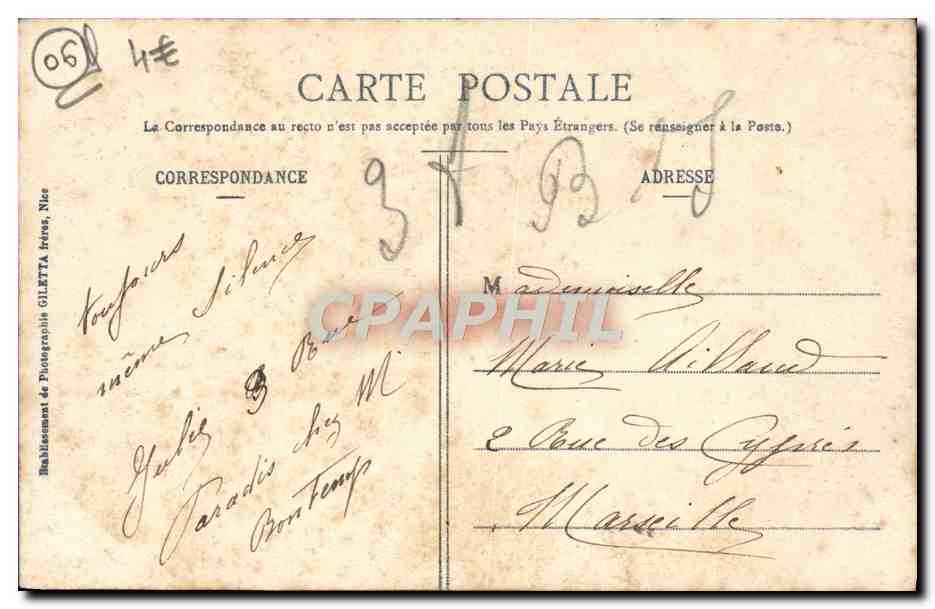 06
4€
CARTE POSTALE
La Correspondance au recto n'est pas acceptée par tous les Pays Étrangers. (Se renseigner à la Poste.)
CORRESPONDANCE
ADRESSE
Etablissement de Photographie GILETTA frères, Nice
toujours
même Silence
3 Rue
Paradis chez M
BonTemps
Mademoiselle
Marie
2 Rue des Cyprès
Marseille
CPAPHIL